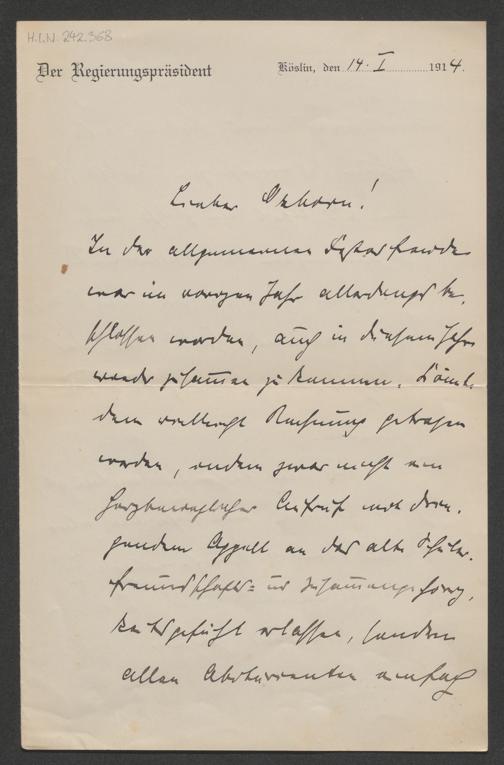 H.I.N. 242.368
Der Regierungspräsident
Köslin, den 14. I 1914.
Lieber Osborn!
In der allgemeinen Festesfreude
war im vorigen Jahr allerdings be-
schlossen worden, auch in diesem Jahre
wieder zusammen zu kommen. Könnte
dem vielleicht Rechnung getragen
werden, indem zwar nicht ein
herzbeweglicher Aufruf mit drin-
gendem Appell an das alte Schüler-
freundschafts- und Zusammengehörig-
keitsgefühl erlassen, sondern
allen Abiturienten einfach